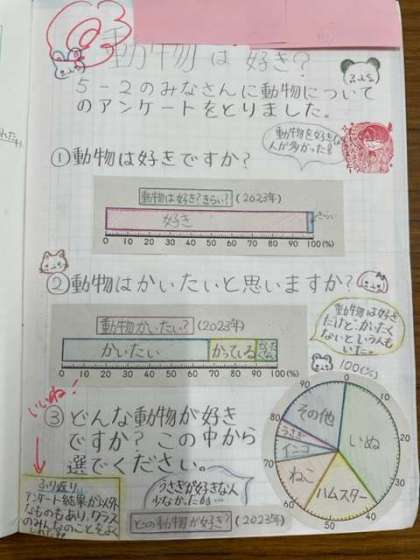 動物は好き？
5-2のみなさんに動物について
のアンケートをとりました。
動物を好きな
人が多かった！
①動物は好きですか？
動物は好き？きらい？(2023年)
好き
きらい
0 10 20 30 40 50 60 70 80 90 100(%)
②動物はかいたいと思いますか？
動物かいたい？(2023年)
かいたい
かっている
0 10 20 30 40 50 60 70 80 90 100(%)
動物は好き
だけど、かいたく
ないという人も
いた。
いいね！
③どんな動物が好き
ですか？この中から
選でください。
100(%)
その他
いぬ
うさぎ
インコ
ねこ
ハムスター
90
80
70
60
50
40
30
20
10
うさぎが好きな人
少なかった
どの動物が好き？(2023年)
ふり返り
アンケート結果が以外
なものもあり、クラス
のみんなのことをよく